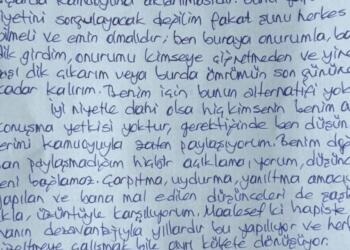 kamuoyuna
iyetini sorgulayacak değilim fakat şunu herkes
bilmeli ve emin olmalıdır; ben buraya onurumla, ba
dik girdim, onurumu kimseye çiğnetmeden ve yine
dik çıkarım veya burda ömrümün son gününe
kadar kalırım. Benim için bunun alternatifi yok
İyi niyetle dahi olsa hiçkimsenin benim a
konuşma yetkisi yoktur, gerektiğinde ben düşün
erimi kamuoyuyla zaten paylaşıyorum. Benim doğ
an paylaşmadığım hiçbir açıklama, yorum, düşünce
beni bağlamaz. Çarpıtma, uydurma, yanıltma amacıy
yapılan ve bana mal edilen düşünceleri de şaş
kla, üzüntüyle karşılıyorum. Maalesef ki hapiste
nın dezavantajıyla yıllardır bu yapılıyor ve her
düzeltmeye çalışmak bile ayrı külfete dönüşüyor.